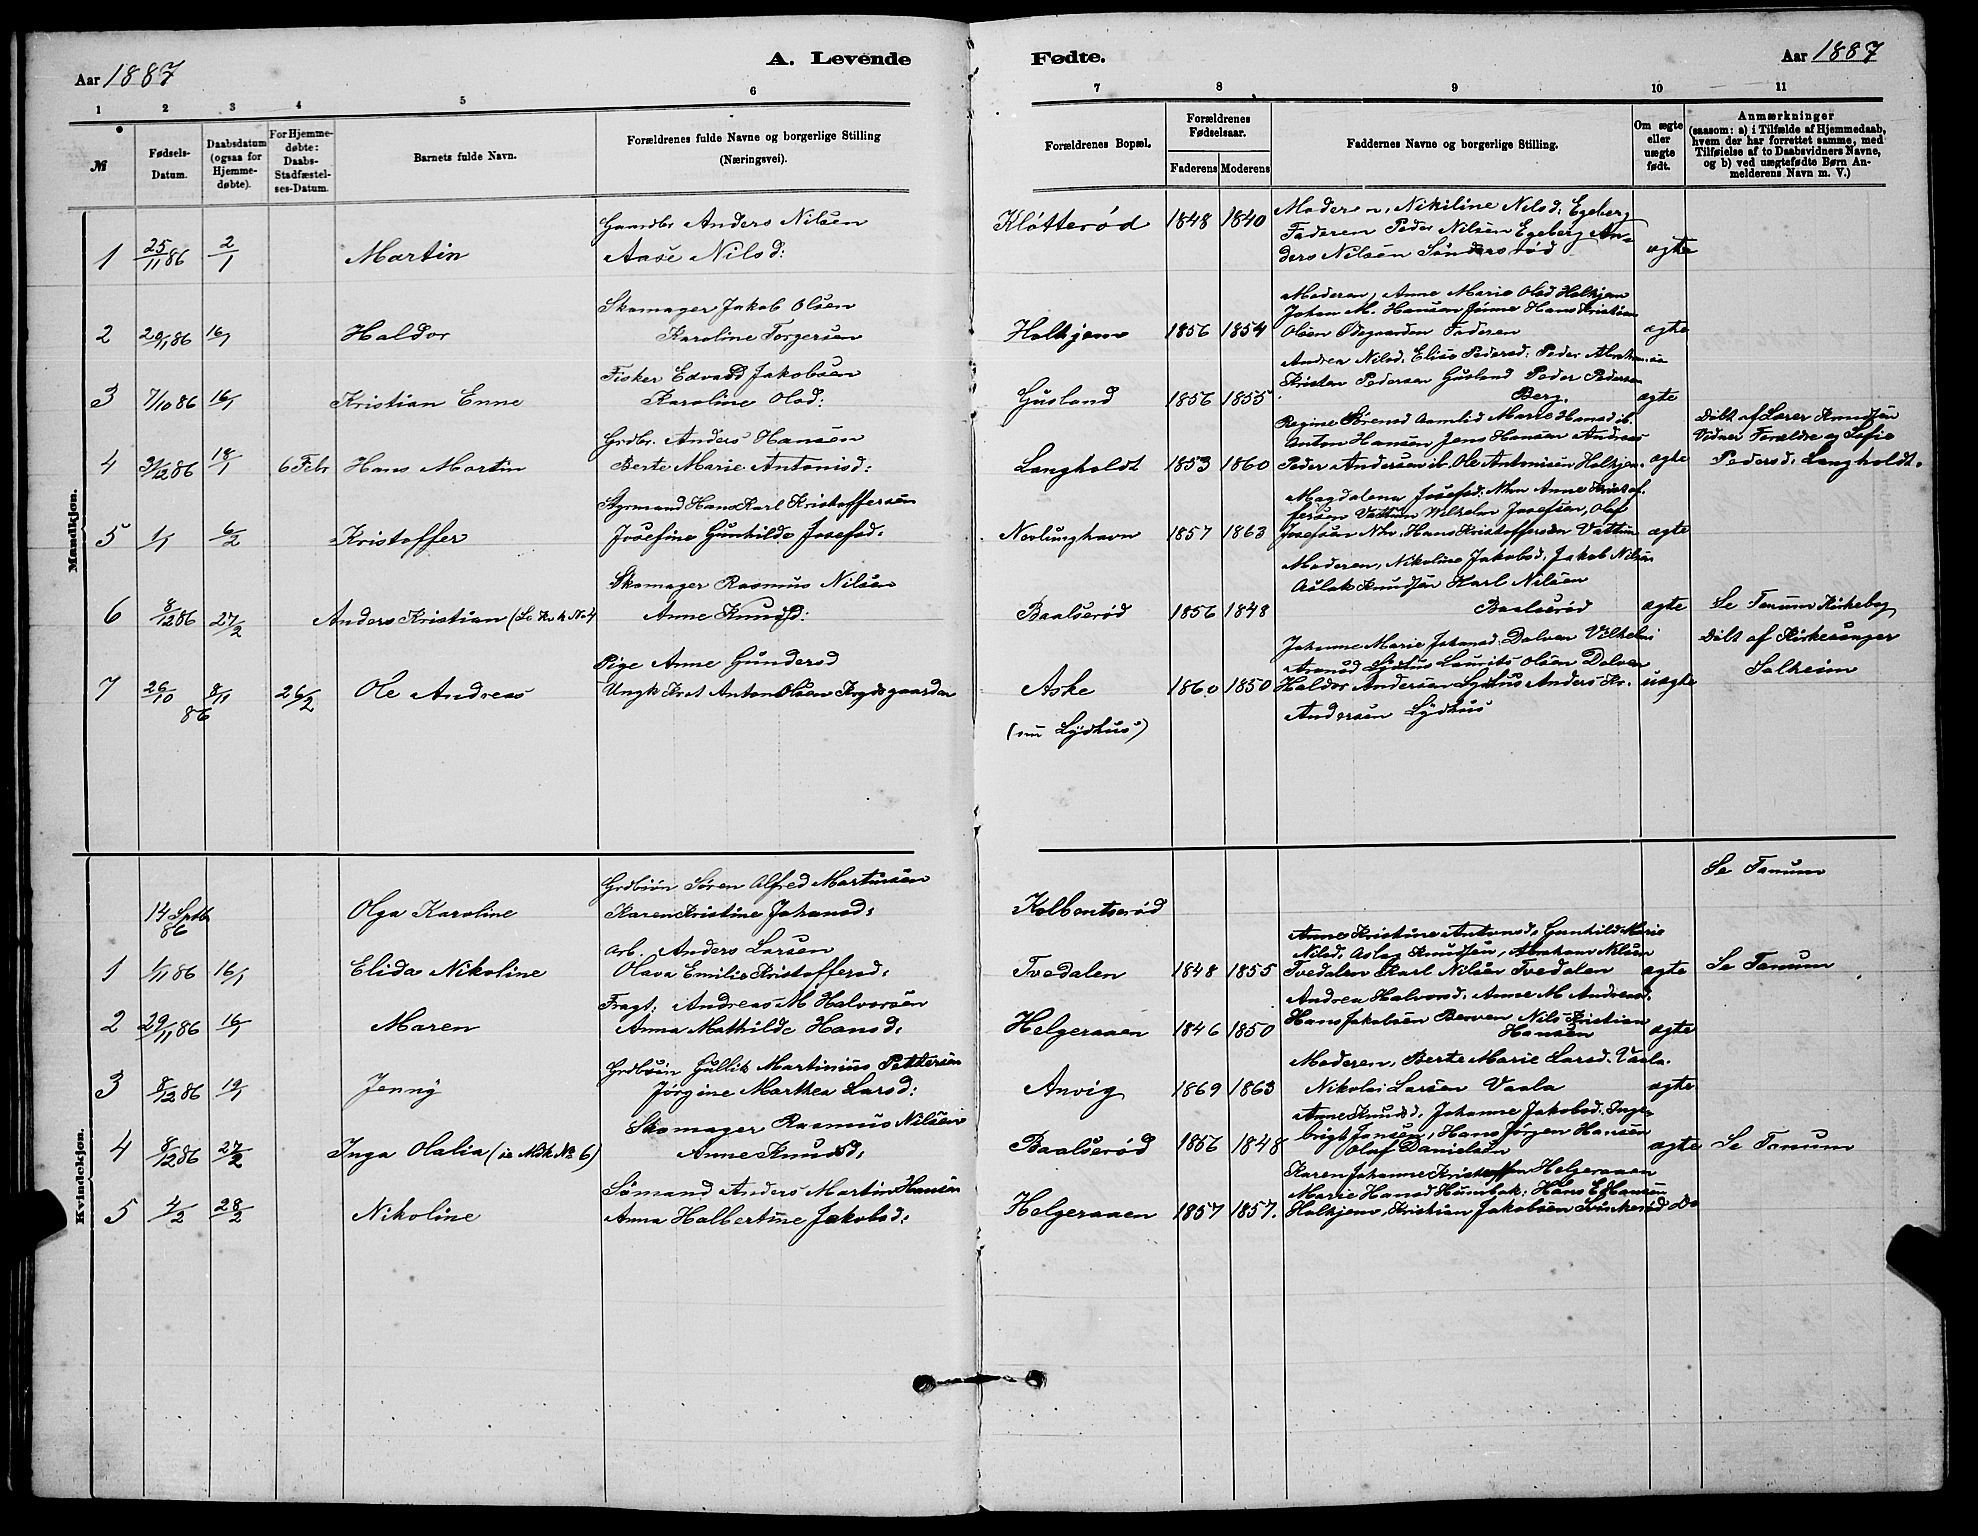 Aar 1887
A. Levende
Fødte.
Aar 1887
1 2 3 4 5 6
7 8 9 10 11
№
Fødsels-Datum.
Daabsdatum (ogsaa for Hjemmedøbte).
For Hjemmedøbte: Daabs-Stadfæstelses-Datum.
Barnets fulde Navn.
Forældrenes fulde Navne og borgerlige Stilling
(Næringsvei).
Forældrenes Bopæl.
Forældrenes Fødselsaar.
Faderens Moderens
Faddernes Navne og borgerlige Stilling.
Om ægte eller uægte født.
Anmærkninger
(saasom: a) i Tilfælde af Hjemmedaab,
hvem der har forrettet samme, med
Tilføielse af to Daabsvidners Navne,
og b) ved uægtefødte Børn Anmelderens Navn m. V.)
Mandkjøn.
Gaardbr Anders Nilsen
1 25/11 86 2/1 Martin Aase Nilsd:
Kløtterød 1848 1840 Moderen, Nikiline Nilsd: Egeberg
Faderen Peder Nilsen Egeberg An-
ders Nilsen Søndersrød ægte
Skomager Jakob Olsen
2 29/11 86 16/1 Haldor Karoline Torgersen
Moderen, Anne Marie Olsd Holkjem
Johan M. Hansen Hans Kristian
Holkjem 1856 1854 Olsen Ødegaarden Faderen ægte
Fisker Edvard Jakobsen
3 7/10 86 16/1 Kristian Enne Karoline Olsd:
Andrea Nilsd: Elise Pedersd: Peder Abraham-sen
Gusland 1856 1855 Kristen Pedersen Gusland Peder Pedersen
Berg. ægte
Grdbr. Anders Hansen
4 31/12 86 18/1 6 Febr Hans Martin Berte Marie Antonisd:
Regine Sørensd Aamlid Marie Hansd ib.
Anton Hansen Jens Hansen Andreas
Langholdt 1853 1860 Peder Andersen ib. Ole Antonisen Holkjem. ægte
Døbt af Lærer Knudsen
Vidner Forældre og Sofie
Pedersd: Langholdt.
Styrmand Hans Karl Kristoffersen
5 1/1 6/2 Kristoffer Josefine Gunhilde Josefsd:
Magdalena Josefsd: Nhvn Anne Kristof-
fersen Vattum Wilhelm Josefsen, Olaf
Nevlunghavn 1857 1863 Josefsen Nhv. Hans Kristoffersen Vattum ægte
Skomager Rasmus Nilsen
6 8/12 86 27/2 Anders Kristian (Se Kv k No 4 Anne Knudsd:
Moderen, Nikoline Jakobsd, Jakob Nilsen
Aslak Knudsen Karl Nilsen
Baalserød 1856 1848 Baalserød ægte Se Tanum Kirkebog
Pige Anne Gundersd
7 26/10 8/11 86 26/2 Ole Andreas Ungk Anton Olsen
Johanne Marie Johansd: Dolven Vilhelm
Lydhus Laurits Olsen Dolven
Aske 1860 1850 Haldor Andersen Lydhus Anders Kr. uægte
(nu Lydhus) Andersen Lydhus
Døbt af Kirkesanger
Solheim
Kvindekjøn.
Grdbsøn Søren Alfred Martinsen
14 Septb 86 Olga Karoline Karen Kristine Johansd:
Kolbentserød Se Tanum
Arb. Anders Larsen
1 1/11 86 16/1 Elida Nikoline Olava Emilie Kristoffersd:
Anne Kristine Antonsd, Gunhild Marie
Nilsd, Aslag Knudsen, Abraham Nilsen
Tvedalen 1848 1855 Tvedalen Karl Nilsen Tvedalen ægte Se Tanum
Fragt: Andreas M Halvorsen
2 29/11 86 16/1 Maren Anna Mathilde Hansd:
Andrea Halvorsd, Anne M Andreasd:
Helgeraaen 1846 1850 Hans Jakobsen Berven Nils Kristian
Hansen ægte
Grdbsøn Gullik Martinius Pettersen
3 8/12 86 19/1 Jenny Jørgine Marthea Larsd:
Moderen, Berte Marie Larsd: Vaala.
Anvig 1869 1863 Nikolai Larsen Vaala ægte
Skomager Rasmus Nilsen
4 8/12 86 27/2 Inga Olalia (se Mdk No 6) Anne Knudsd:
Anne Knudsd, Johanne Jakobsd: Inge-
brigt Jonsen, Hans Jørgen Hansen
Baalserød 1856 1848 Olaf Danielsen ægte Se Tanum
Sømand Anders Martin Hansen
5 4/2 28/2 Nikoline Anna Halbertine Jakobsd:
Karen Johanne Kristoffersen Helgeraaen
Marie Hansd Humbak: Hans E Hansen
Helgeraaen 1857 1857. Holkjem, Kristian Jakobsen Do